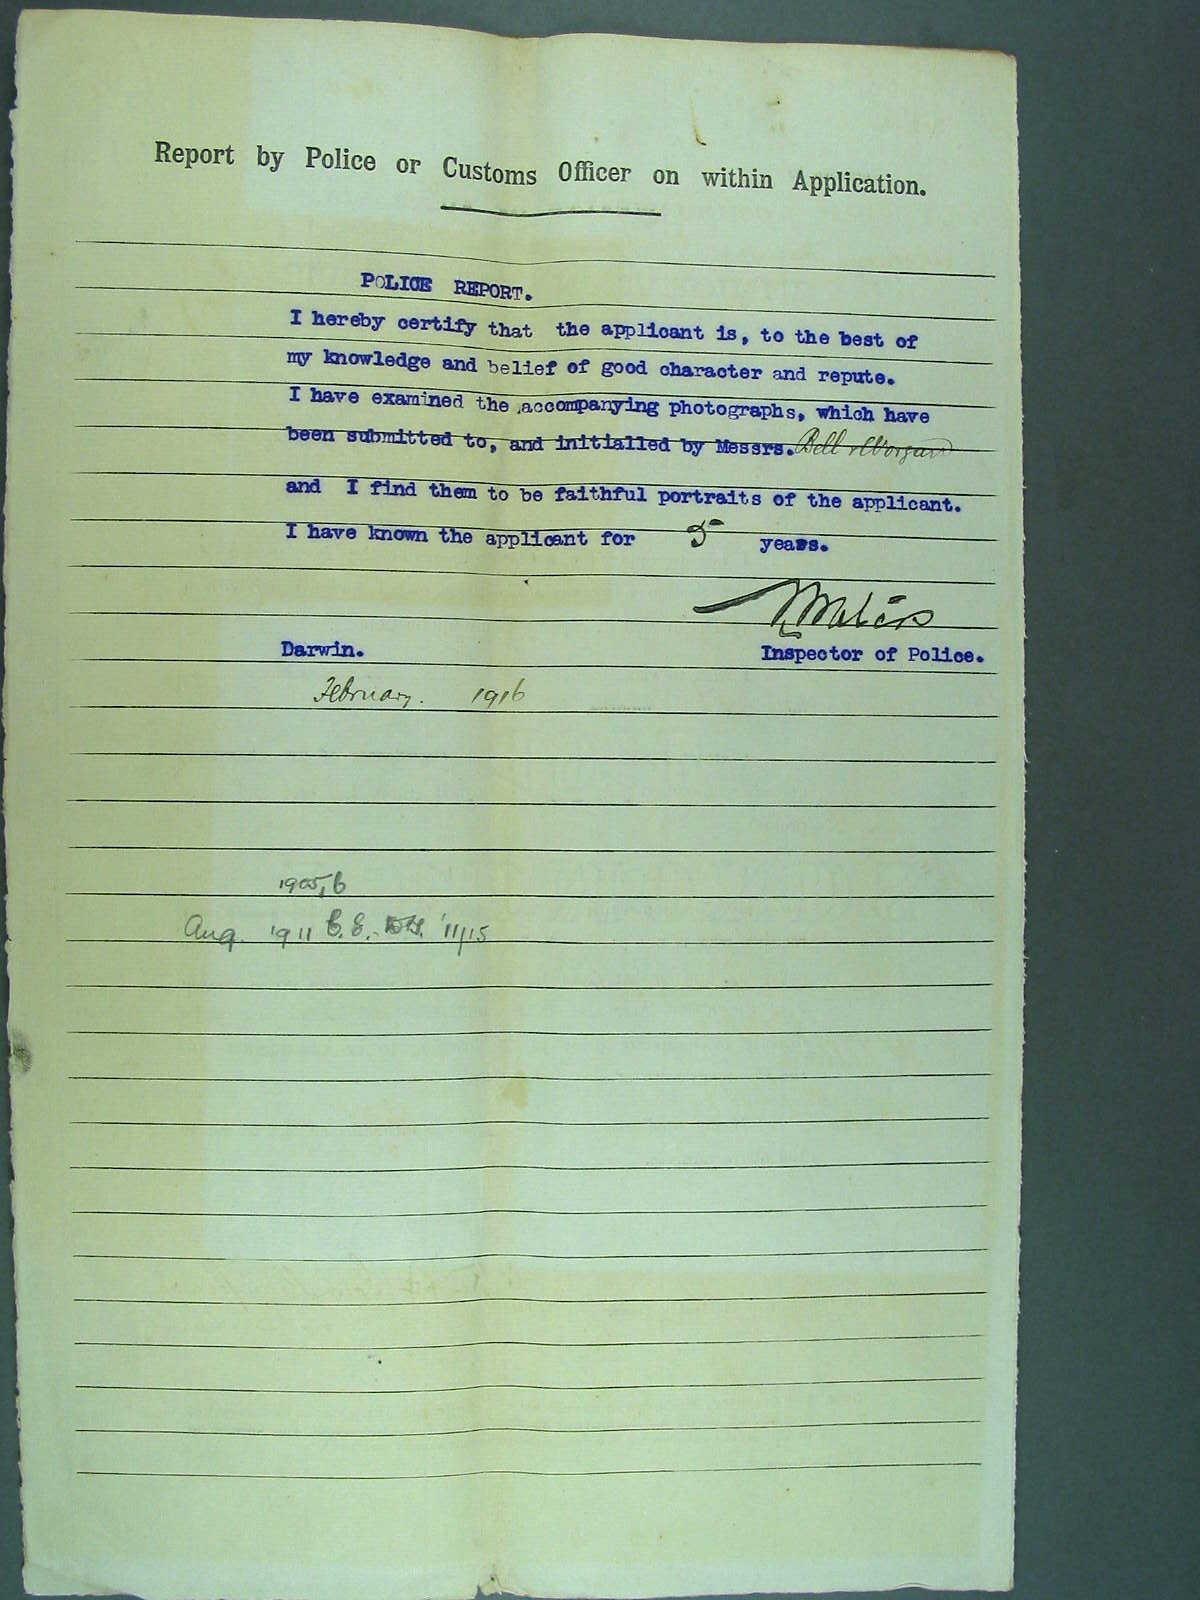 Report by Police or Customs Officer on within Application.
POLICE REPORT.
I hereby certify that the applicant is, to the best of
my knowledge and belief of good character and repute.
I have examined the accompanying photographs, which have
been submitted to, and initialled by Messrs. Bell &
and I find them to be faithful portraits of the applicant.
I have known the applicant for 5 years.
Darwin. Inspector of Police.
February. 1916
1905,6
Aug. 1911 '11/15